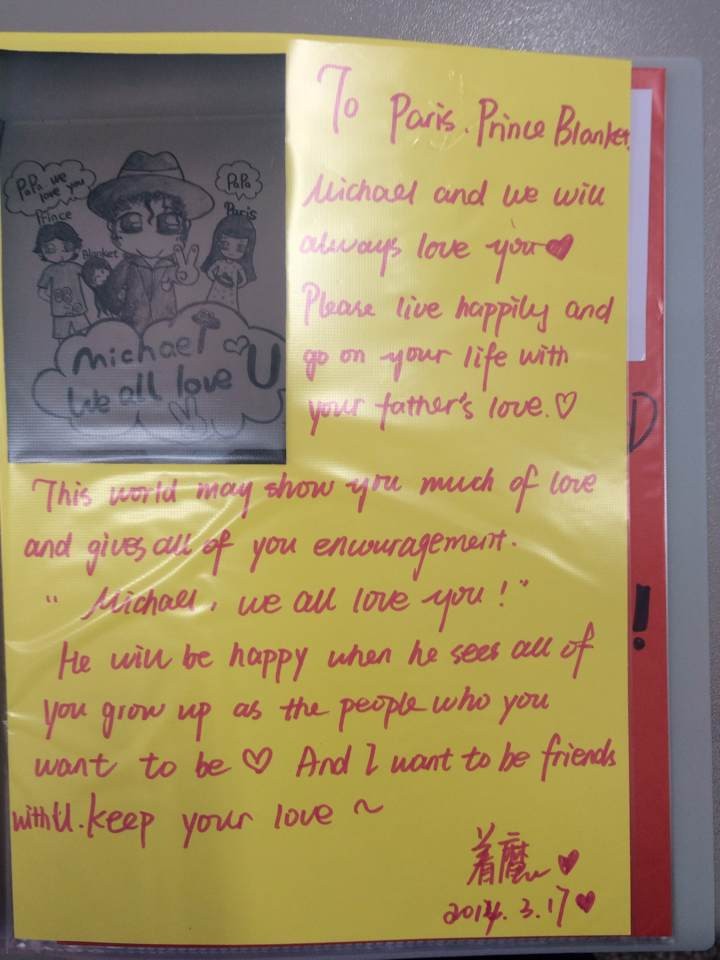 PaPa we
love you
Prince
Blanket
PaPa
Paris
Michael
We all love U
To Paris. Prince Blanket.
Michael and we will
always love you♥
Please live happily and
go on your life with
your father's love.♡
This world may show you much of love
and gives all of you encouragement.
" Michael, we all love you ! "
He will be happy when he sees all of
you grow up as the people who you
want to be ♡ And I want to be friends
with U. keep your love ~
着魔 ♥
2014. 3. 17 ♥
D
!